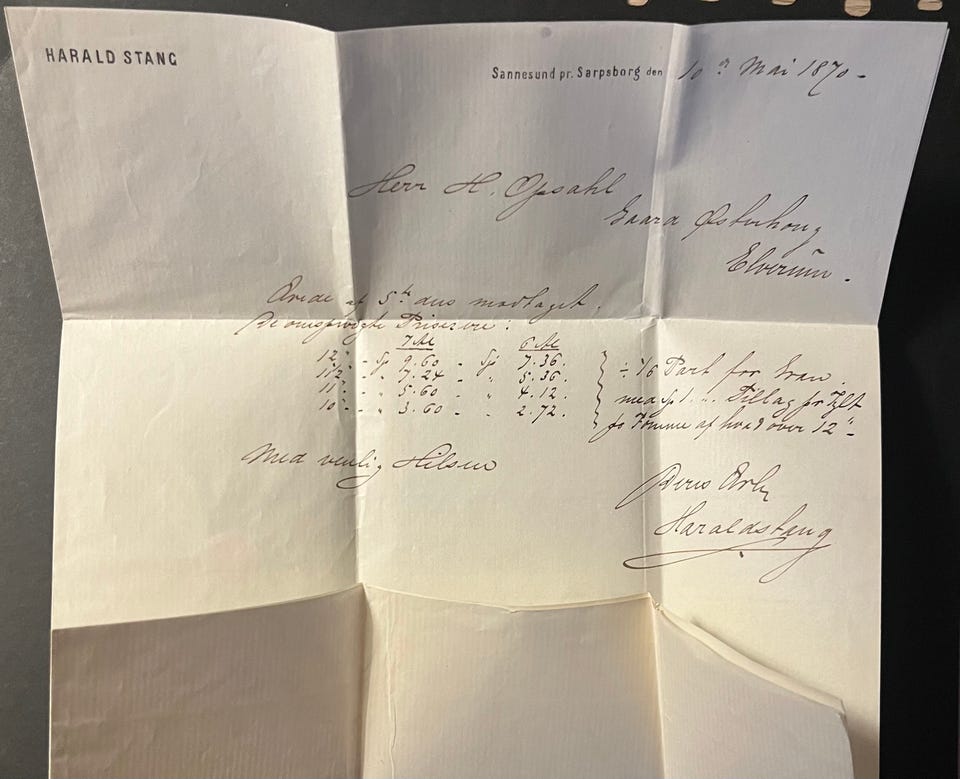 HARALD STANG
Sannesund pr. Sarpsborg den 10 Mai 1870 -
Herr H. Opsahl
Gaard Østerhoug
Elverum.
Ærede af 5te dns modtaget.
De omspurgte Priser ere:
7 Al 6 Al
12" - Sp 9.60 - Sp 7.36.
11½ - " 7.24 - " 5.36.
11" - " 5.60 - " 4.12.
10" - " 3.60 - " 2.72.
÷ 1/6 Part for Gran.
med Sp 1 Tillæg pr Tylt
pr Tomme af hvad over 12"-
Med venlig Hilsen
Deres Ærb
Harald Stang